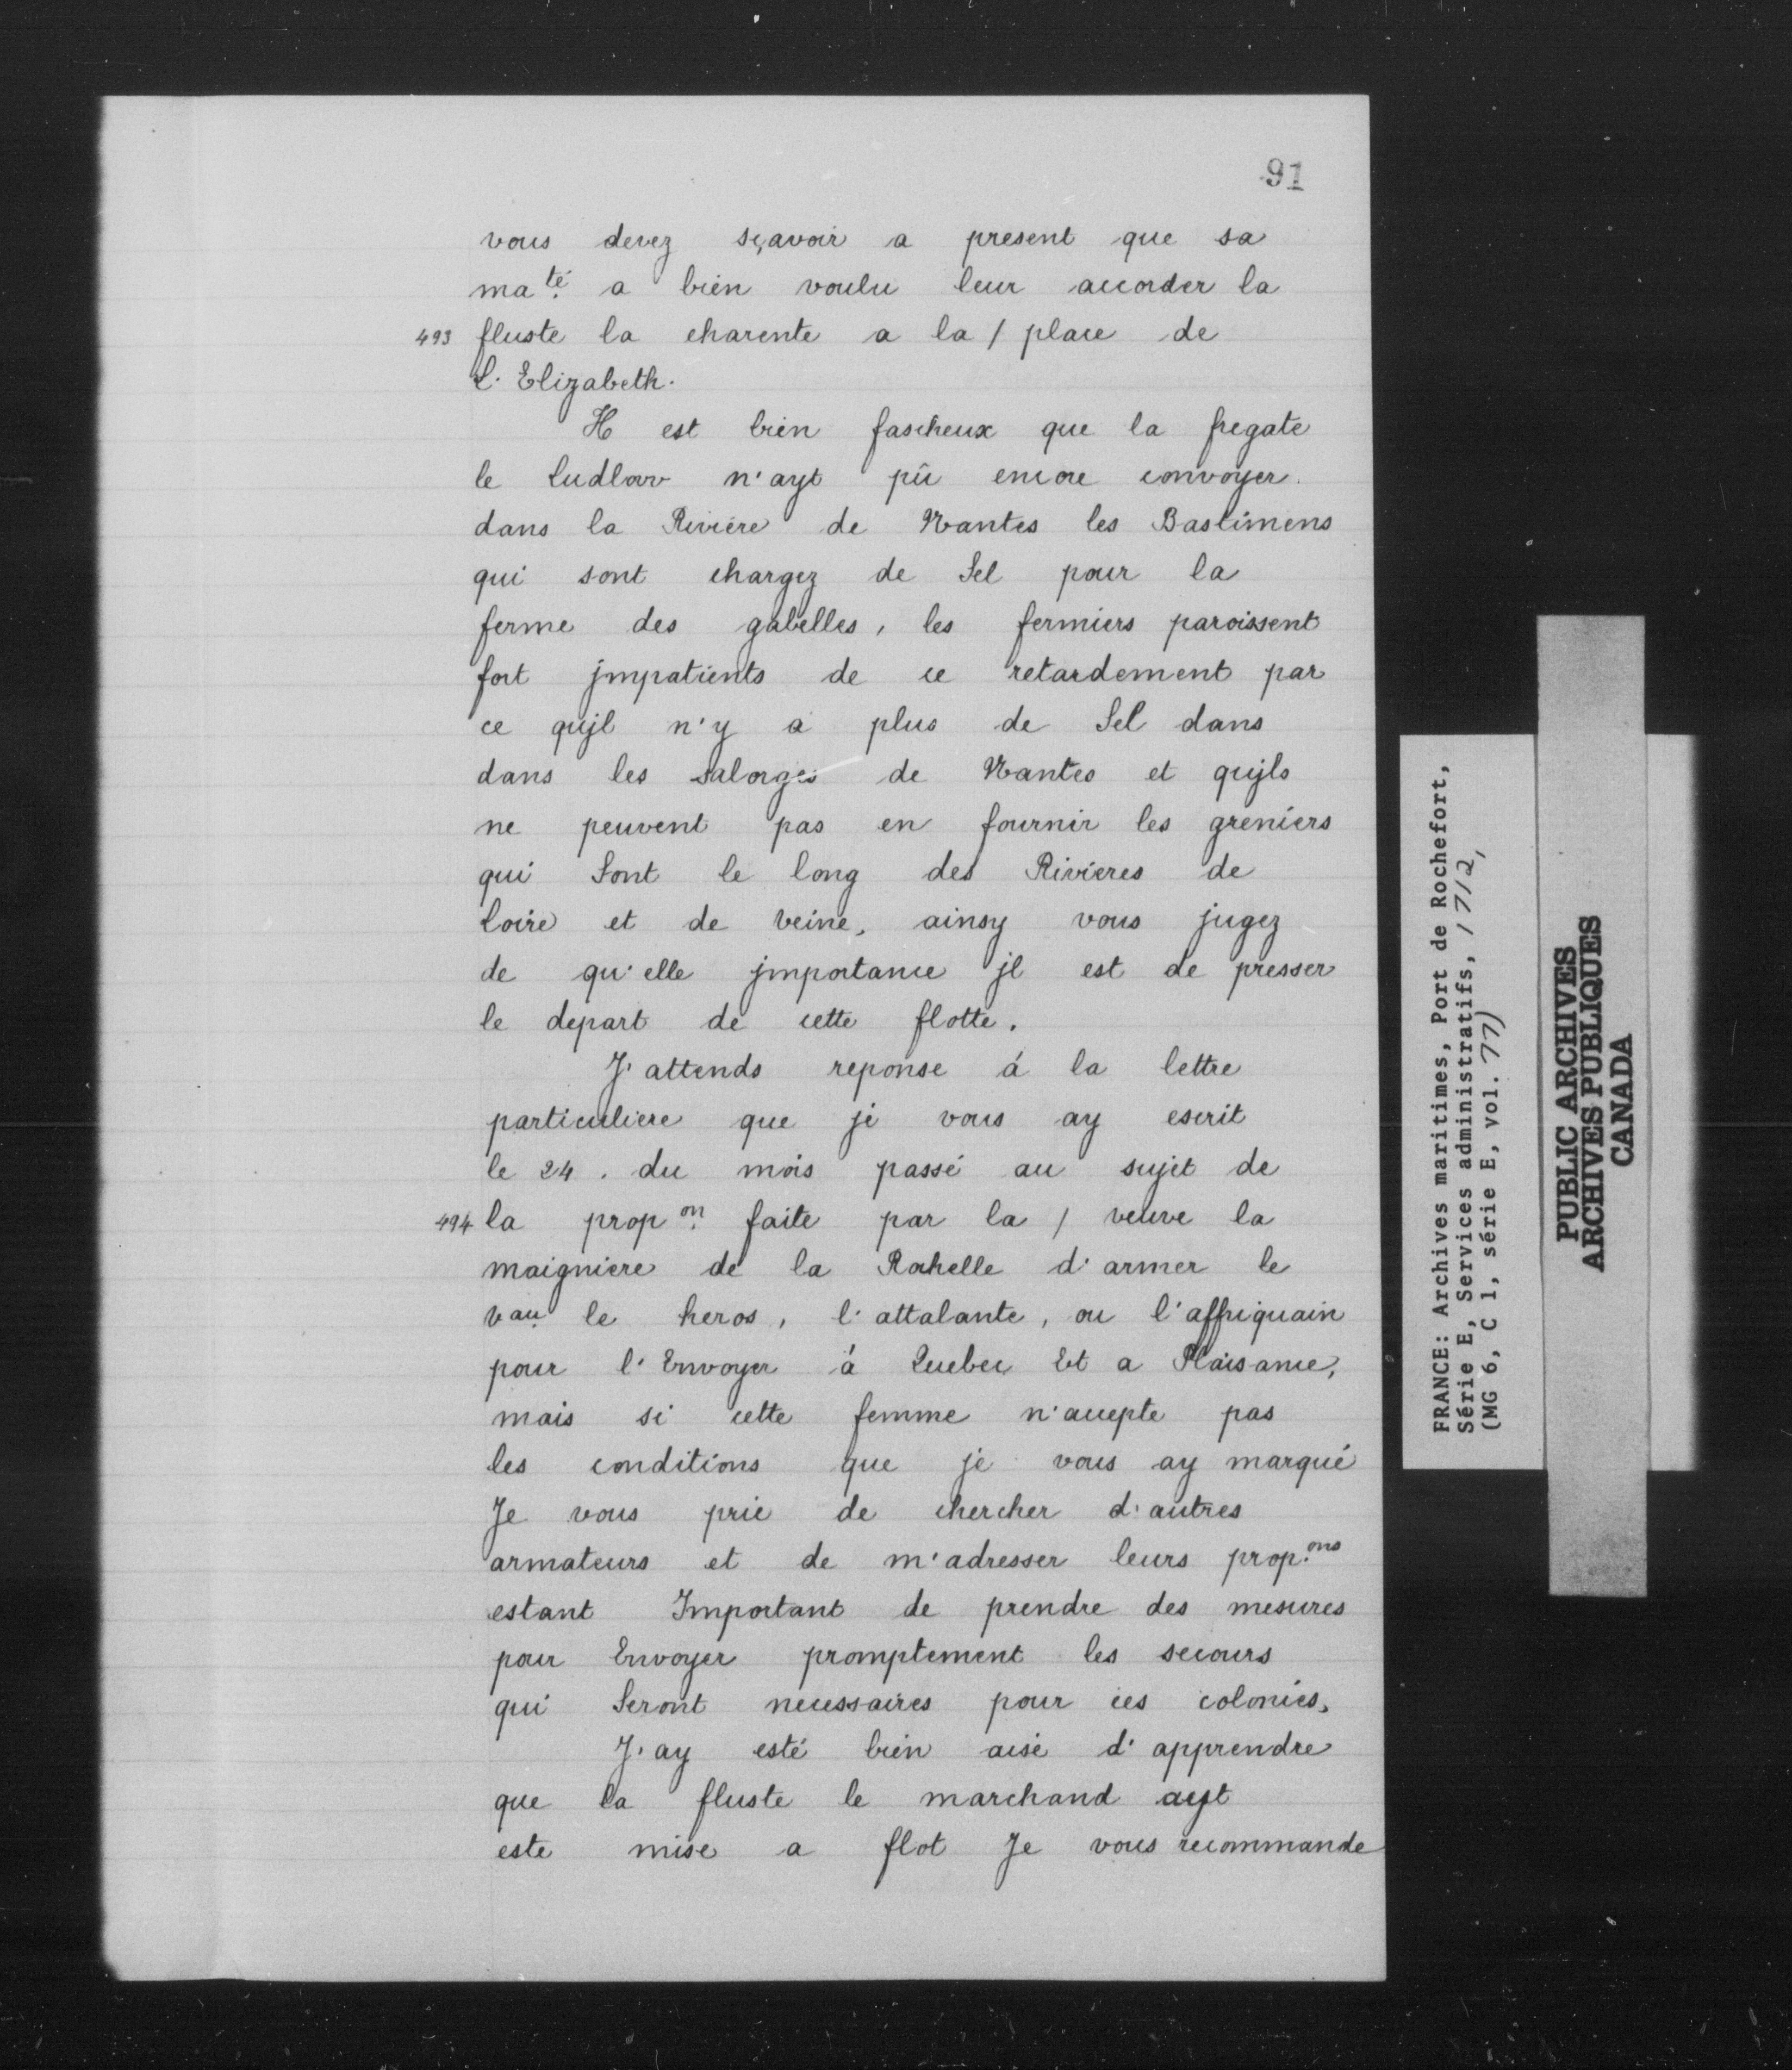 91
vous devez sçavoir a present que sa
ma.té a bien voulu leur accorder la
493 fluste la charente a la / place de
L'Elizabeth.
Il est bien fascheux que la fregate
le Ludlow n'ayt pû encore convoyer.
dans la Riviére de Nantes les Bastimens
qui sont chargez de Sel pour la
ferme des gabelles, les fermiers paroissent
fort jmpatients de ce retardement par
ce qujl n'y a plus de Sel dans
dans les salorges de Nantes et qujls
ne peuvent pas en fournir les greniers
qui Sont le long des Rivieres de
Loire et de veine, ainsy vous jugez
de qu'elle jmportance jl est de presser
le depart de cette flotte.
J'attends reponse á la lettre
particuliere que je vous ay escrit
le 24. du mois passé au sujet de
494 la prop.on faite par la / veuve la
maigniere de la Rochelle d'armer le
v.au le heros, l'attalante, ou l'affriquain
pour l'Envoyer á Quebec Et a Plaisance,
mais si cette femme n'accepte pas
les conditions que je vous ay marqué
Je vous prie de chercher d'autres
armateurs et de m'adresser leurs prop.ons
estant Important de prendre des mesures
pour Envoyer promptement les secours
qui Seront necessaires pour ces colonies,
J'ay esté bien aise d'apprendre
que la fluste le marchand ayt
este mise a flot Je vous recommande
FRANCE: Archives maritimes, Port de Rochefort,
Série E, Services administratifs, 1712,
(MG 6, C 1, série E, vol. 77)
PUBLIC ARCHIVES
ARCHIVES PUBLIQUES
CANADA